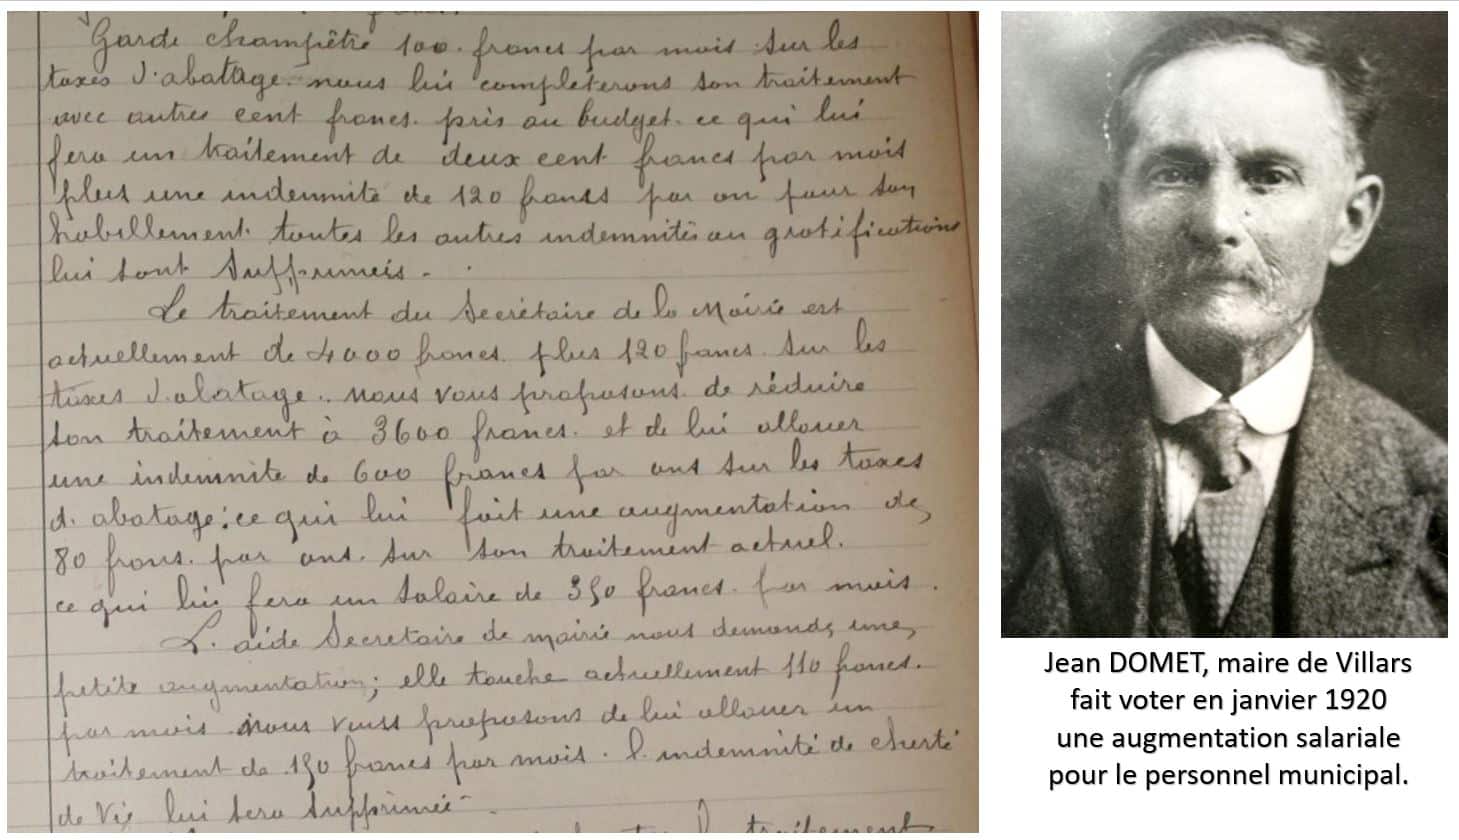 Garde champêtre 100. francs par mois sur les
taxes d'abatage. nous lui complèterons son traitement
avec autres cent francs. pris au budget. ce qui lui
fera un traitement de deux cent francs par mois
plus une indemnité de 120 francs par an pour son
habillement. toutes les autres indemnités ou gratifications
lui sont supprimeis.
Le traitement du Secrétaire de la Mairie est
actuellement de 4000 francs. plus 120 francs. sur les
taxes d'abatage.. nous vous proposons. de réduire
son traitement à 3600 francs. et de lui allouer
une indemnité de 600 francs par ans sur les taxes
d. abatage: ce qui lui fait une augmentation de
80 francs. par ans. sur son traitement actuel.
ce qui lui fera un salaire de 350 francs. par mois.
L. aide Secretaire de mairie nous demande une
petite augmentation; elle touche actuellement 110 francs.
par mois. nous vous proposons de lui allouer un
traitement de 150 francs par mois. l. indemnité de cherté
de Vie lui sera supprimée
traitement
Jean DOMET, maire de Villars
fait voter en janvier 1920
une augmentation salariale
pour le personnel municipal.